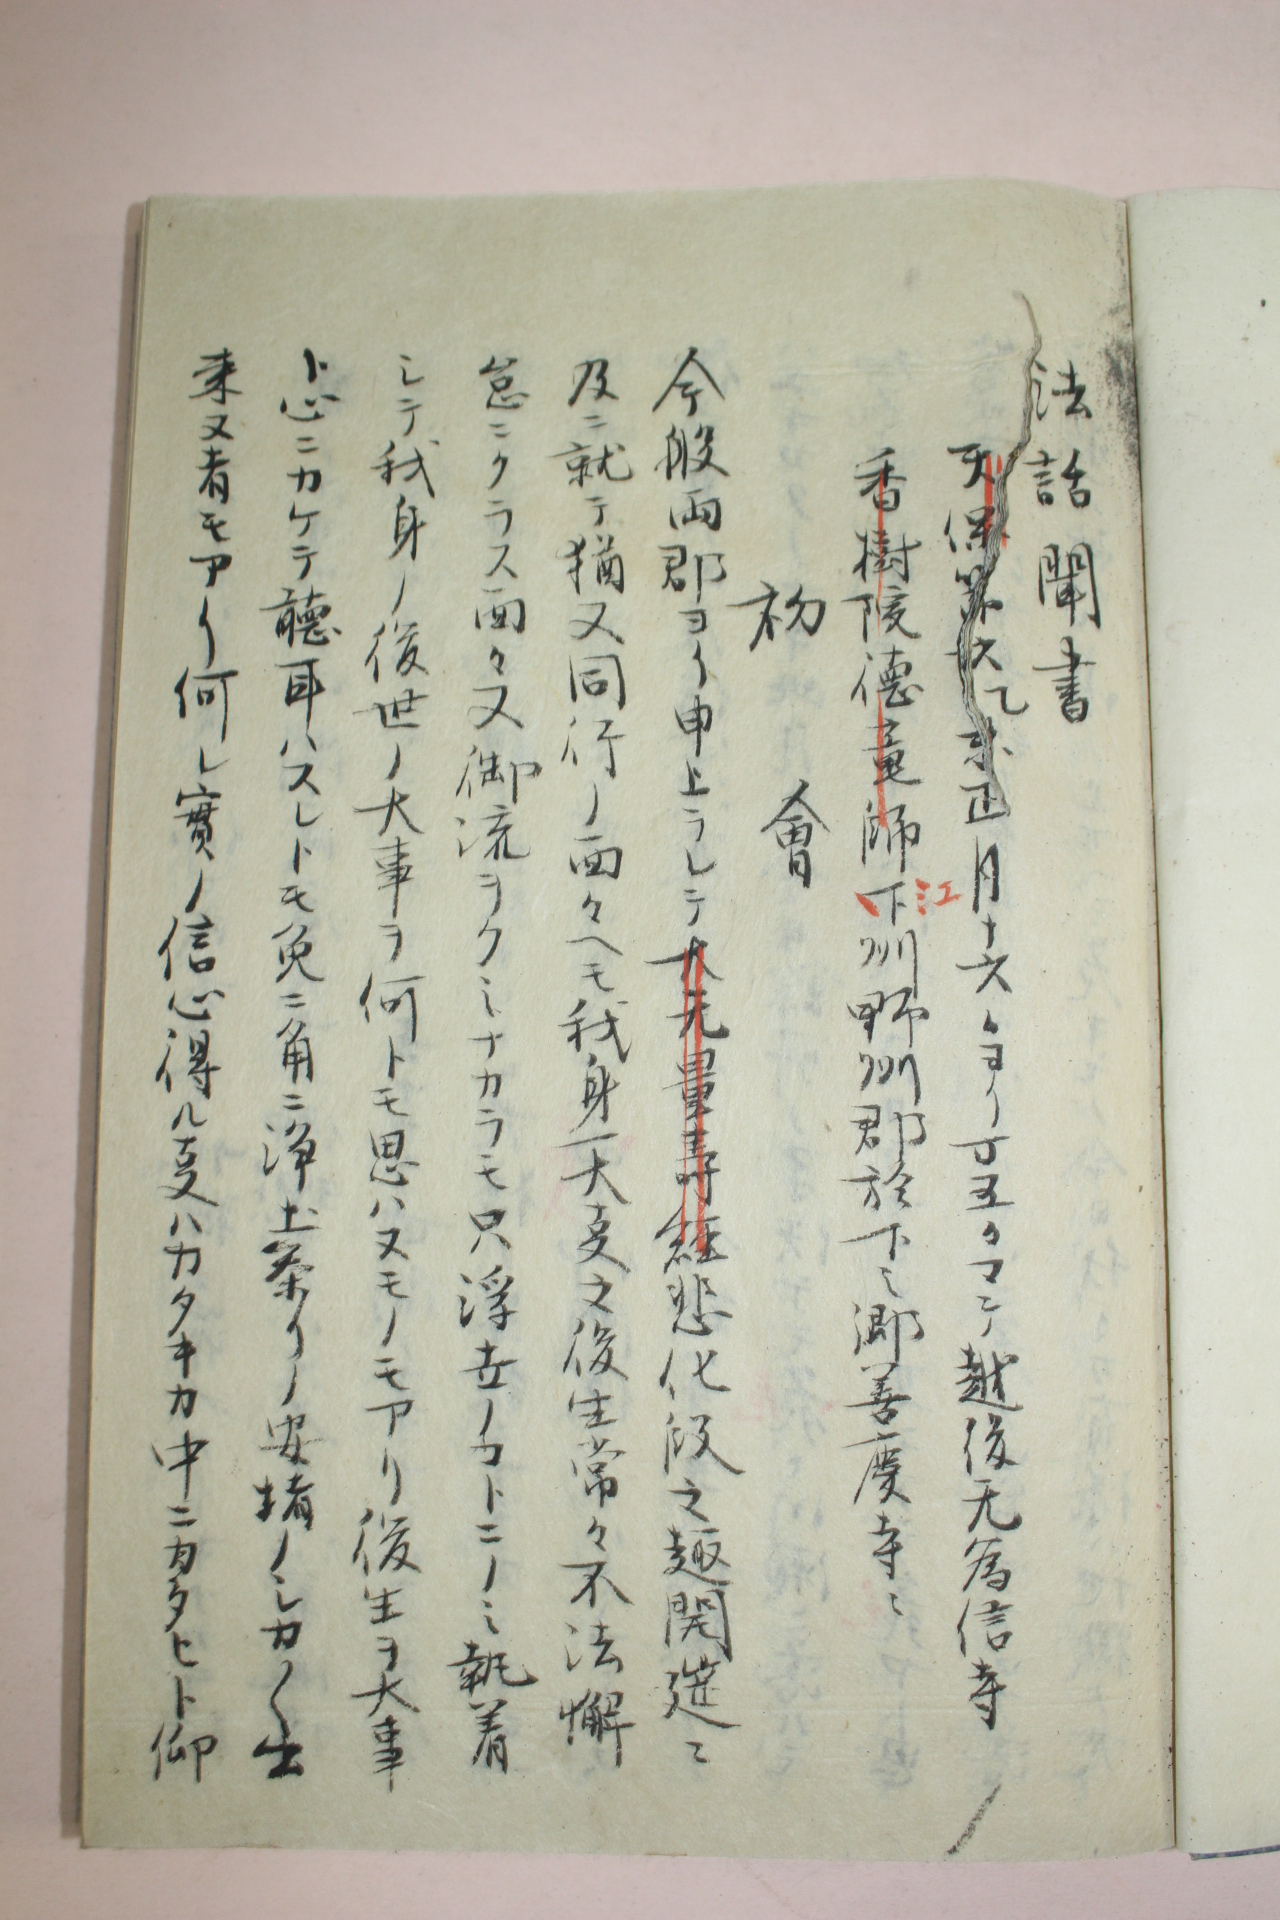 法話聞書
天保第六乙未正月十六日ヨリ丁五日マテ越後无為信寺
香樹院德竜師下江州野州郡於下ミ郷善慶寺ニ
初會
今般両郡ヨリ申上ラレテ大无量寿經悲化段之趣開莚ニ
及ニ就テ猶又同行ノ面々ヘモ我身一大叓之後生常々不法懈
怠ニクラス面々又御流ヲクミナカラモ只浮世ノコトニノミ執着
シテ我身ノ後世ノ大事ヲ何トモ思ハヌモノモアリ後生ヲ大事
ト心ニカケテ聽耳ハスレトモ兎ニ角ニ浄土参リノ安堵ノシカ〱出
来ヌ者モアリ何レ實ノ信心得ル叓ハカタキカ中ニカタヒト仰